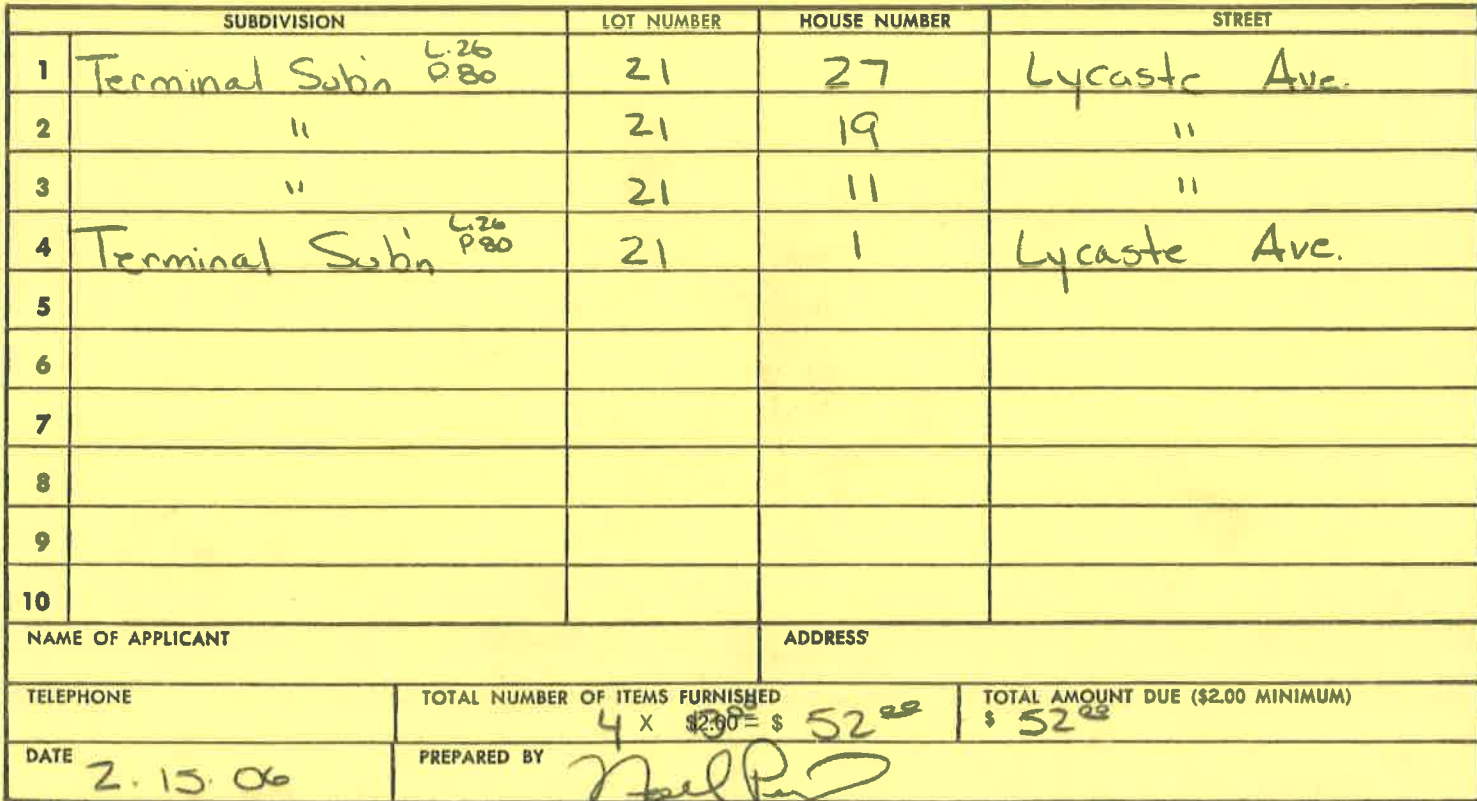 SUBDIVISION LOT NUMBER HOUSE NUMBER STREET
1 Terminal Sub'n L.26 P.80 21 27 Lycaste Ave.
2 " 21 19 "
3 " 21 11 "
4 Terminal Sub'n L.26 P.80 21 1 Lycaste Ave.
5
6
7
8
9
10
NAME OF APPLICANT ADDRESS
TELEPHONE TOTAL NUMBER OF ITEMS FURNISHED TOTAL AMOUNT DUE ($2.00 MINIMUM)
4 X $2.00 = $ 52 00 $ 52 00
DATE 2.15.06 PREPARED BY Noel